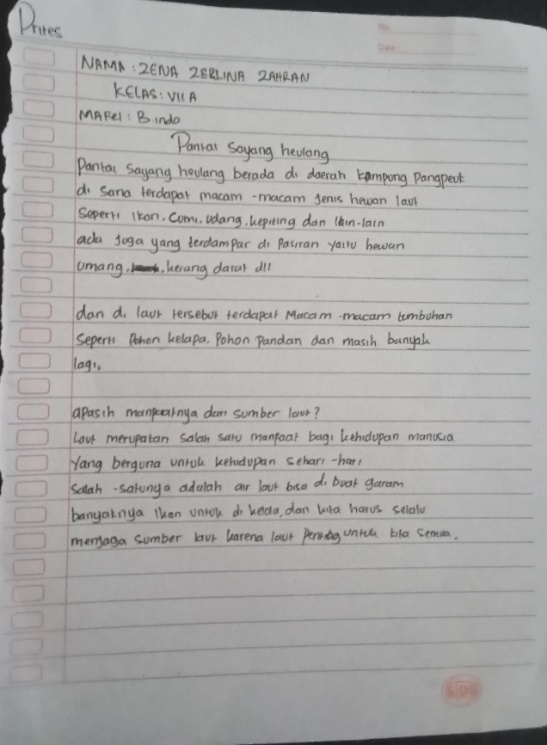 Prites
No:
Date:
NAMA : ZENA ZERLINA ZAHRAN
KELAS : VII A
MAPel : B.indo
Pantai Sayang heulang
Pantai Sayang heulang berada di daerah kampung Pangpeuk
di sana terdapat macam-macam jenis hewan laut
seperti ikan, cumi, udang, kepiting dan lain-lain
ada juga yang terdampar di Pasiran yaitu hewan
umang, kerang darat dll
dan di laut tersebut terdapat Macam-macam tumbuhan
Seperti Pohon kelapa, Pohon Pandan dan masih banyak
lagi,
apasih manpaatnya dari sumber laut?
Laut merupakan salah satu manfaat bagi kehidupan manusia
Yang berguna untuk kehidupan sehari-hari
Salah-satunya adalah air laut bisa di buat garam
banyaknya ikan untuk di kelola, dan kita harus selalu
menjaga sumber laut karena laut Penting untuk kita semua.
SIDU